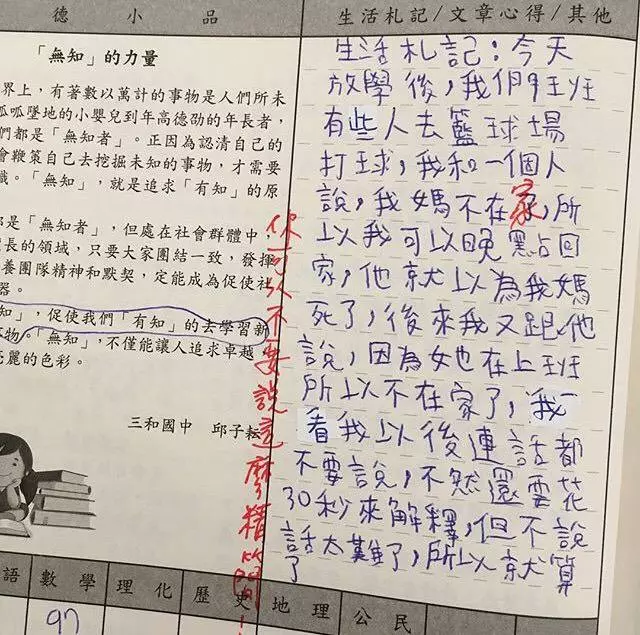 德 小 品
「無知」的力量
界上，有著數以萬計的事物是人們所未
呱呱墜地的小嬰兒到年高德劭的年長者，
們都是「無知者」。正因為認清自己的
會鞭策自己去挖掘未知的事物，才需要
識。「無知」，就是追求「有知」的原
是「無知者」，但處在社會群體中，
長的領域，只要大家團結一致，發揮
養團隊精神和默契，定能成為促使社
器。
知」，促使我們「有知」的去學習新
事物。「無知」，不僅能讓人追求卓越
亮麗的色彩。
三和國中 邱子耘
生活札記/文章心得/其他
生活札記：今天
放學後，我們班
有些人去籃球場
打球，我和一個人
說，我媽不在家，所
以我可以晚點回
家，他就以為我媽
死了，後來我又跟他
說，因為她在上班
所以不在家了，我一
看我以後連話都
不要說，不然還要花
30秒來解釋，但不說
話太難了，所以就算
了
你可以不要說這麼精簡！
語 數學 理化 歷史 地理 公民
97